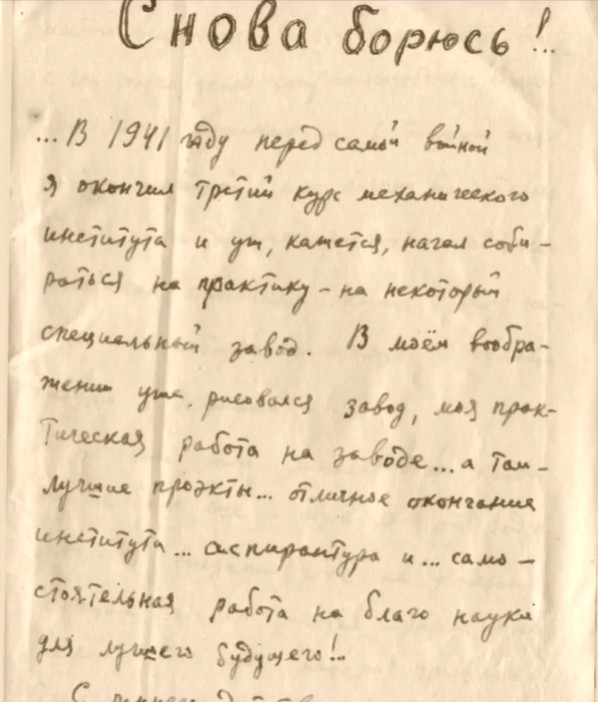 Снова борюсь!..
...В 1941 году перед самой войной
я окончил третий курс механического
института и уж, кажется, начал соби-
раться на практику – на некоторый
специальный завод. В моём вообра-
жении уже рисовался завод, моя прак-
тическая работа на заводе... а там –
лучшие проэкты... отличное окончание
института... аспирантура и... само-
стоятельная работа на благо науки
для лучшего будущего!..
С